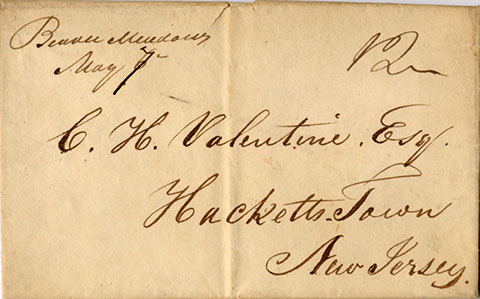 Beaver Meadows
May 7
12
C. H. Valentine. Esq.
Hacketts Town
New Jersey.